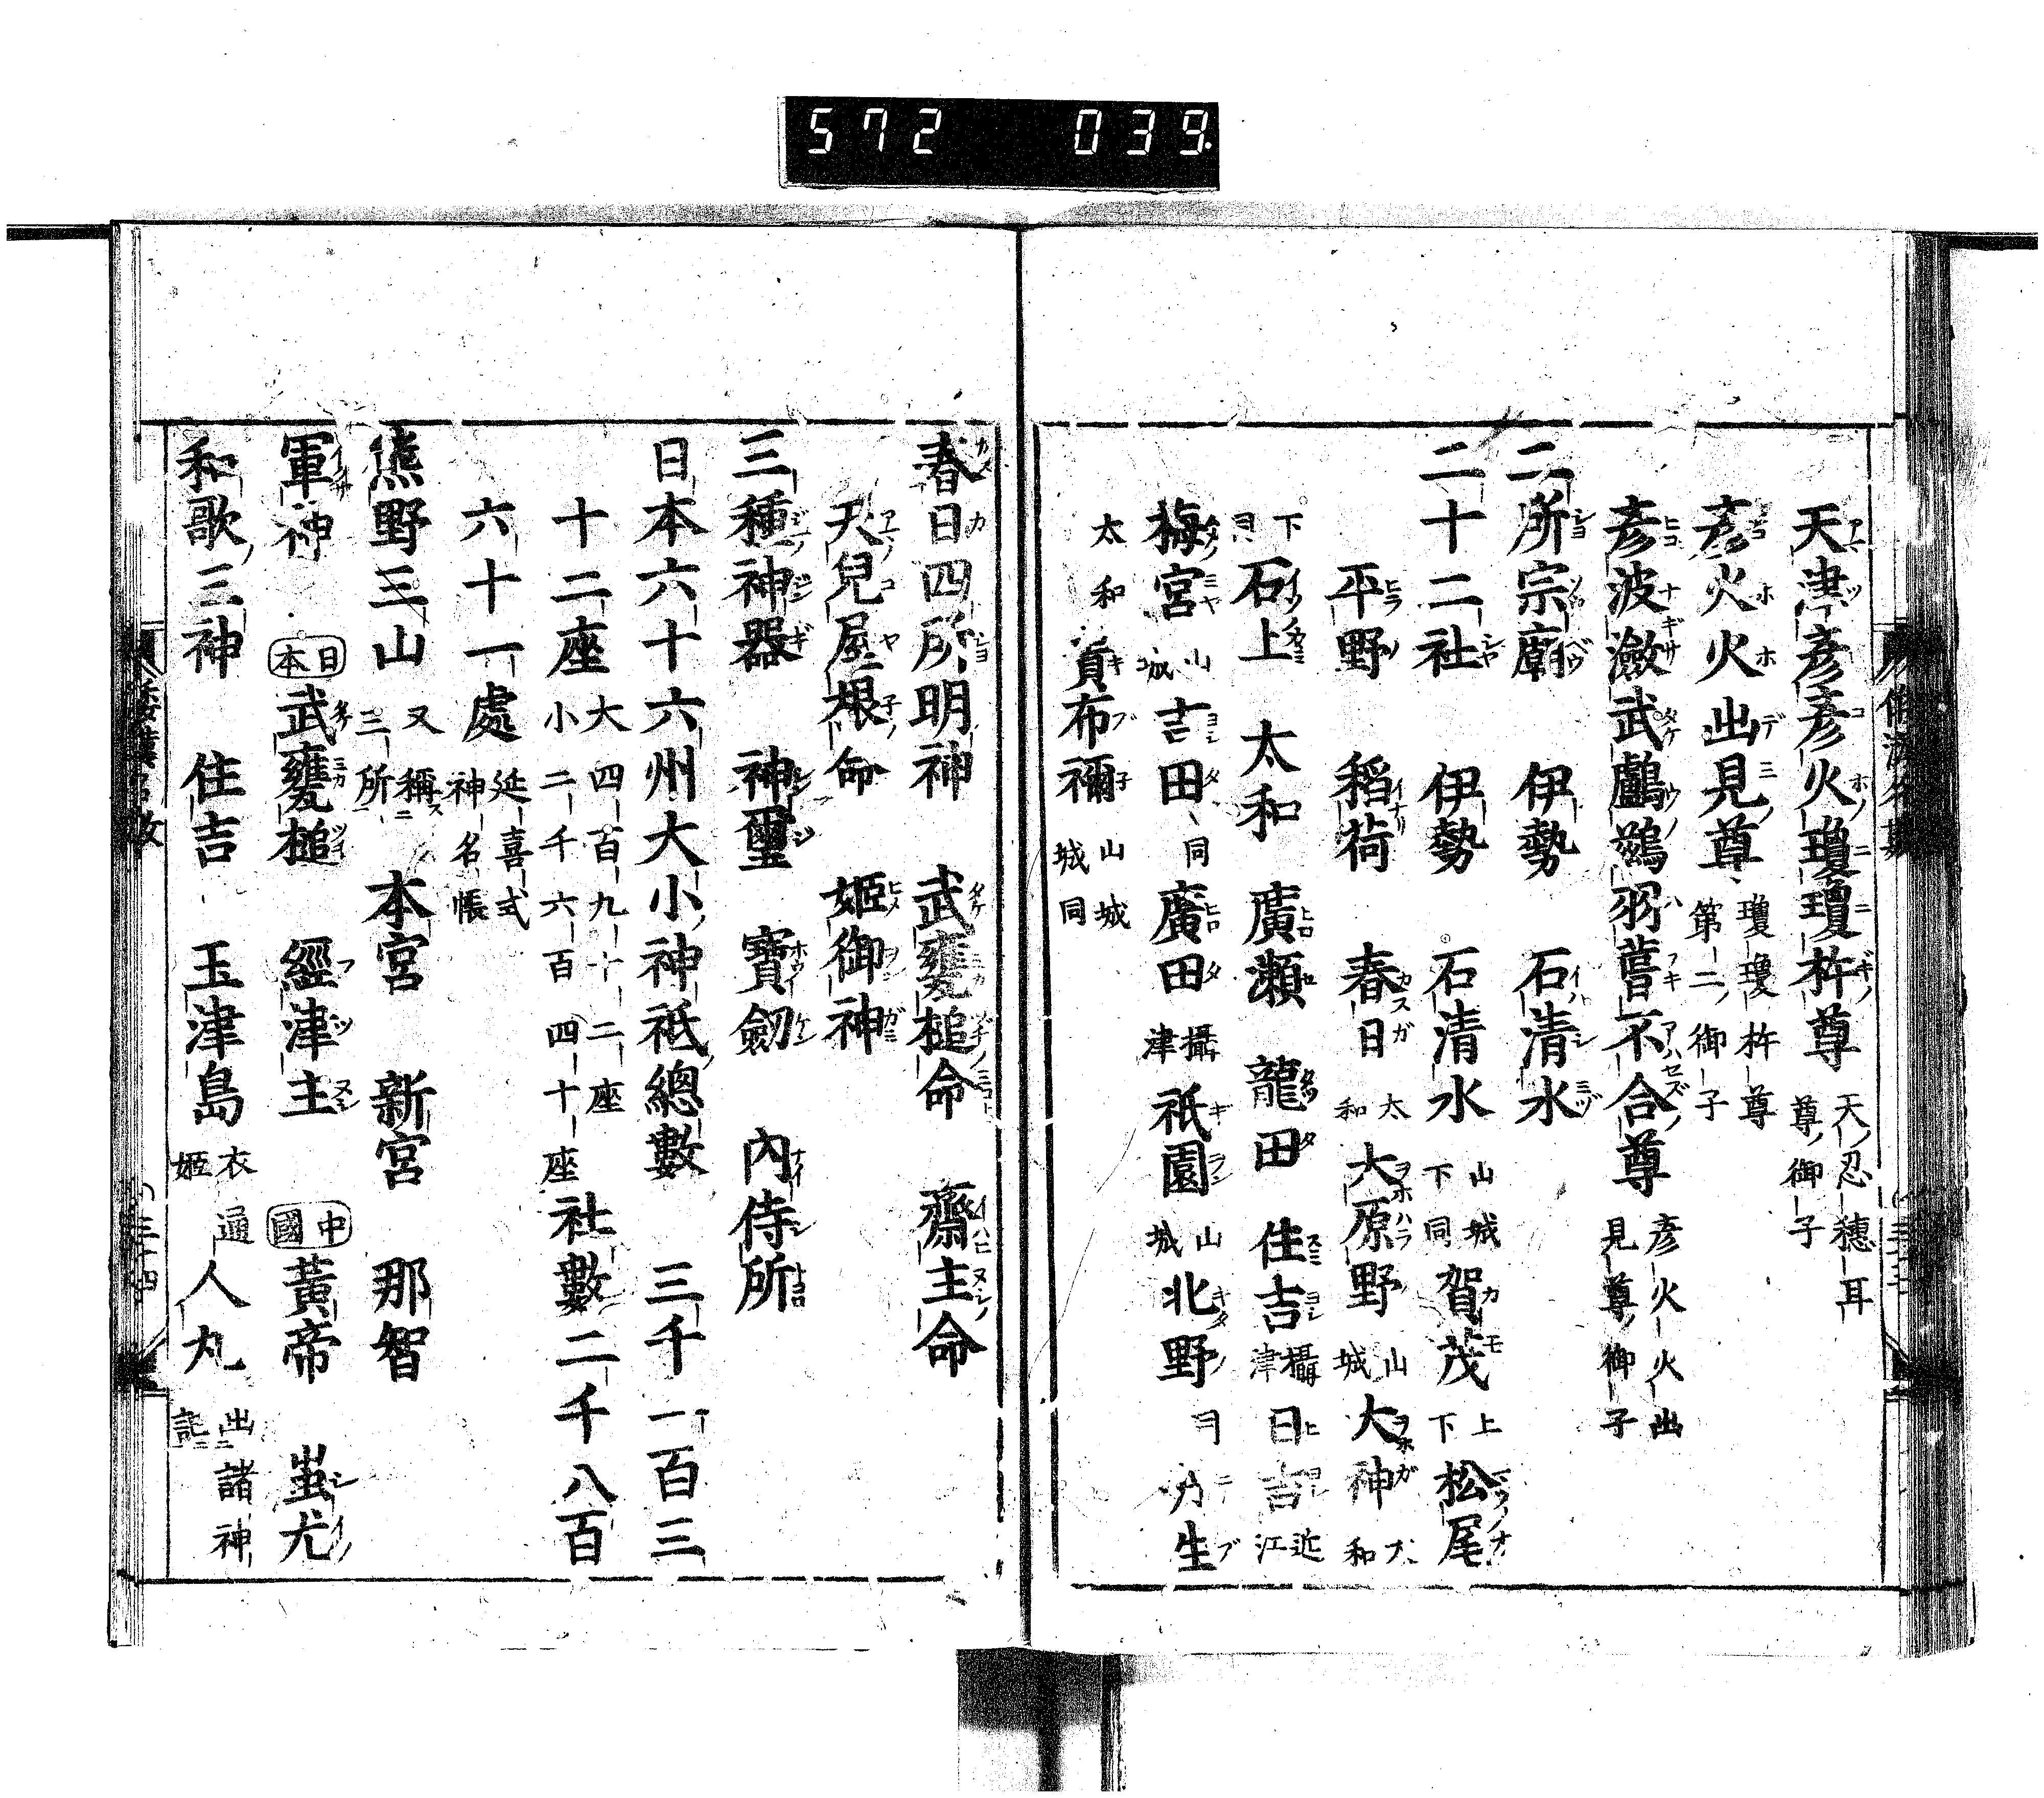 572 039.
天津彦彦火瓊瓊杵尊 天忍穗耳尊御子
彦火火出見尊 瓊瓊杵尊第二御子
彦波瀲武鸕鷀羽葺不合尊 彦火火出見尊御子
二所宗廟 伊勢 石清水
二十二社 伊勢 石清水 山城下同 賀茂 上下 松尾
平野 稻荷 春日 太和 大原野 山城 大神 大和
下同 石上 太和 廣瀬 龍田 住吉 攝津 日吉 近江
梅宮 山城 吉田 同 廣田 攝津 祇園 山城 北野 同 丹生
太和 貴布禰 山城 城同
春日四所明神 武甕槌命 齋主命
天兒屋根命 姬御神
三種神器 神璽 寶劔 內侍所
日本六十六州大小神祗總數 三千一百三
十二座 大四百九十二座 小二千六百四十座 社數二千八百
六十一處 延喜式神名帳
熊野三山 又稱三所 本宮 新宮 那智
軍神 日本 武甕槌 經津主 中國 黃帝 蚩尤
和歌三神 住吉 玉津島 衣通姬 人丸 出諸神記
三十四